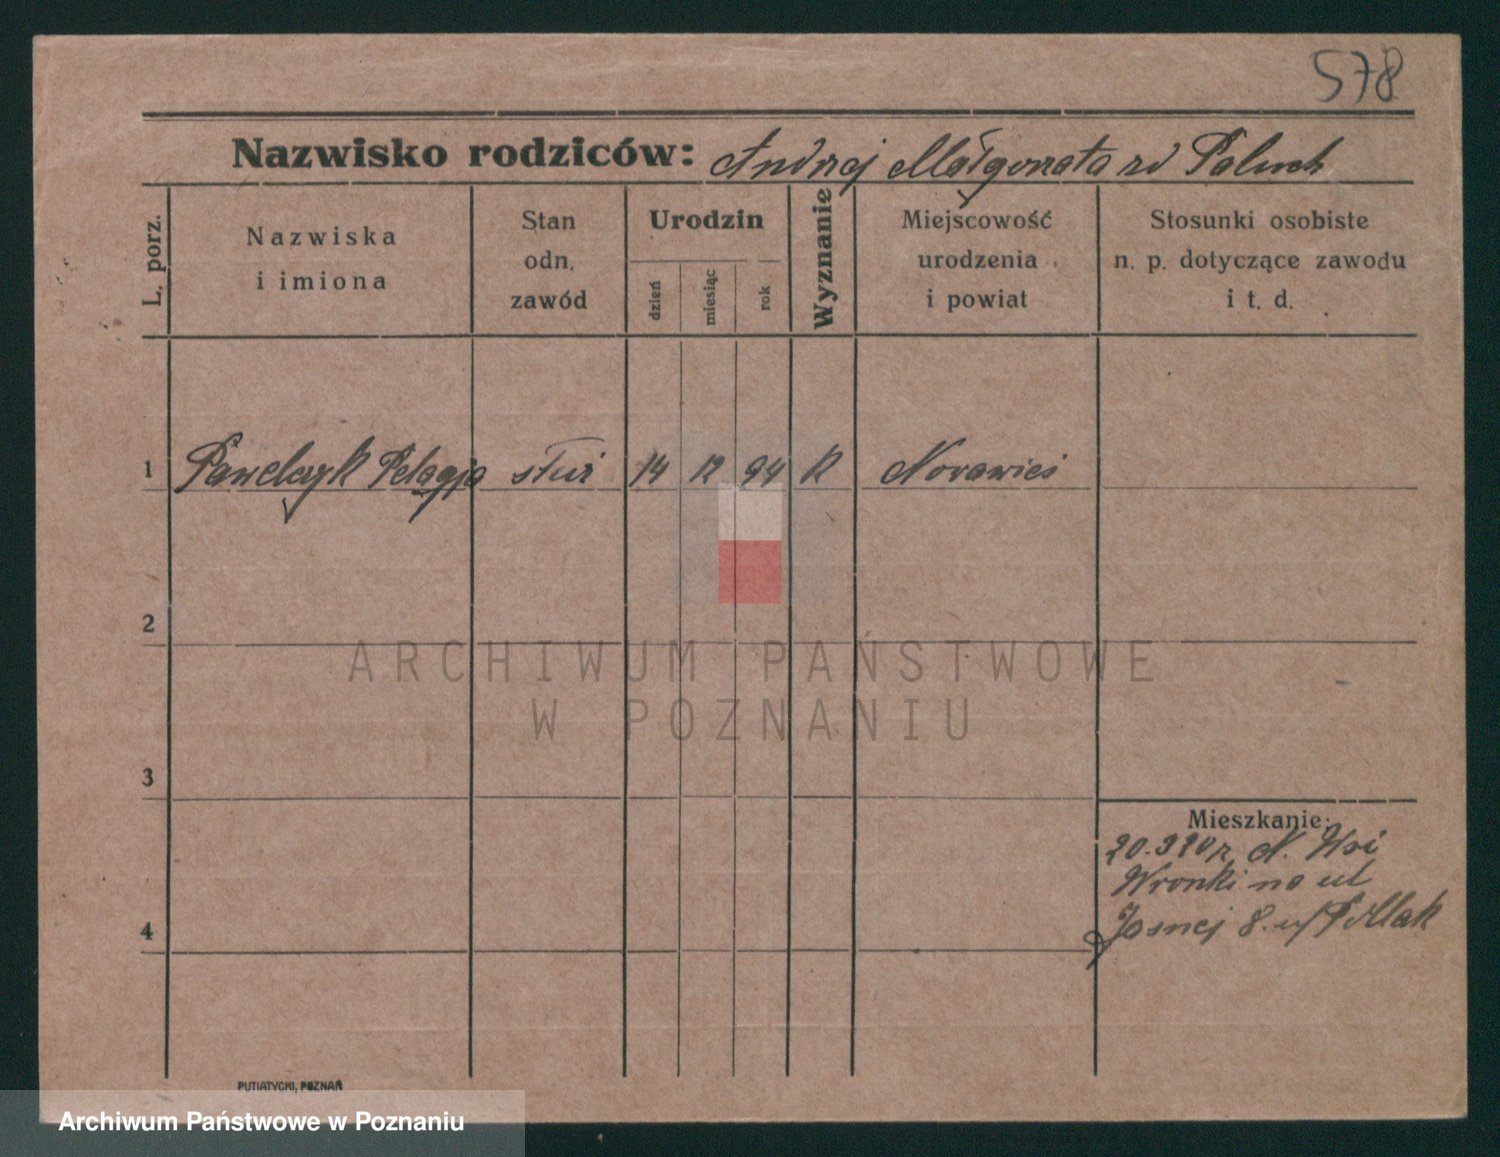 578
Nazwisko rodziców: Andrzej Małgorzata zd Paluch
L. porz.
Nazwiska
i imiona
Stan
odn.
zawód
Urodzin
dzień
miesiąc
rok
Wyznanie
Miejscowość
urodzenia
i powiat
Stosunki osobiste
n. p. dotyczące zawodu
i t. d.
1 Pawelczyk Pelagja służ 14 12 94 K Nowawieś
2
ARCHIWUM PAŃSTWOWE
W POZNANIU
3
Mieszkanie:
20.9 20 r. N. Wsi
Wronki na ul
4
Jasnej 8. u/
PUTIATYCKI, POZNAŃ
Archiwum Państwowe w Poznaniu